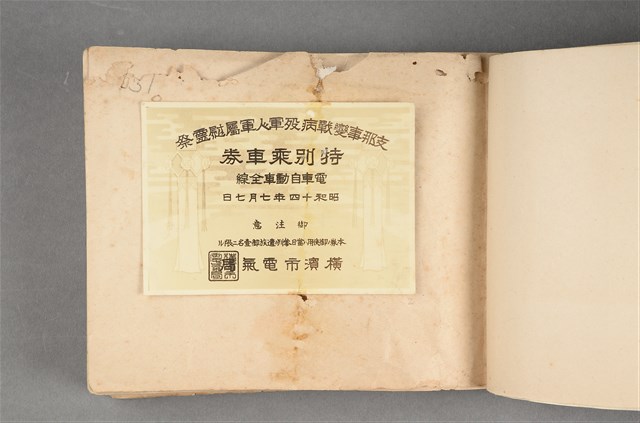 031
支那事變戰病歿軍人軍屬慰靈祭
特別乘車券
電車自動車全線
昭和十四年七月七日
御注意
本券ノ御使用ハ當日參列遺族御壹名ニ限ル
橫濱市電氣局